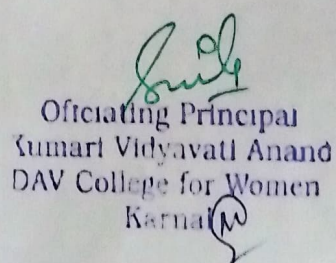 Officiating Principal
Kumari Vidyavati Anand
DAV College for Women
Karnal